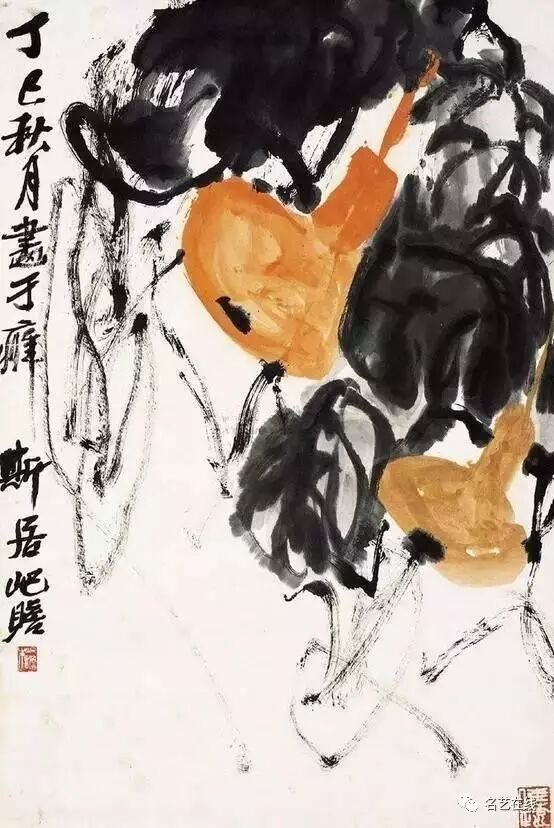 丁巳秋月畫于癖斯居屺瞻
名艺在线